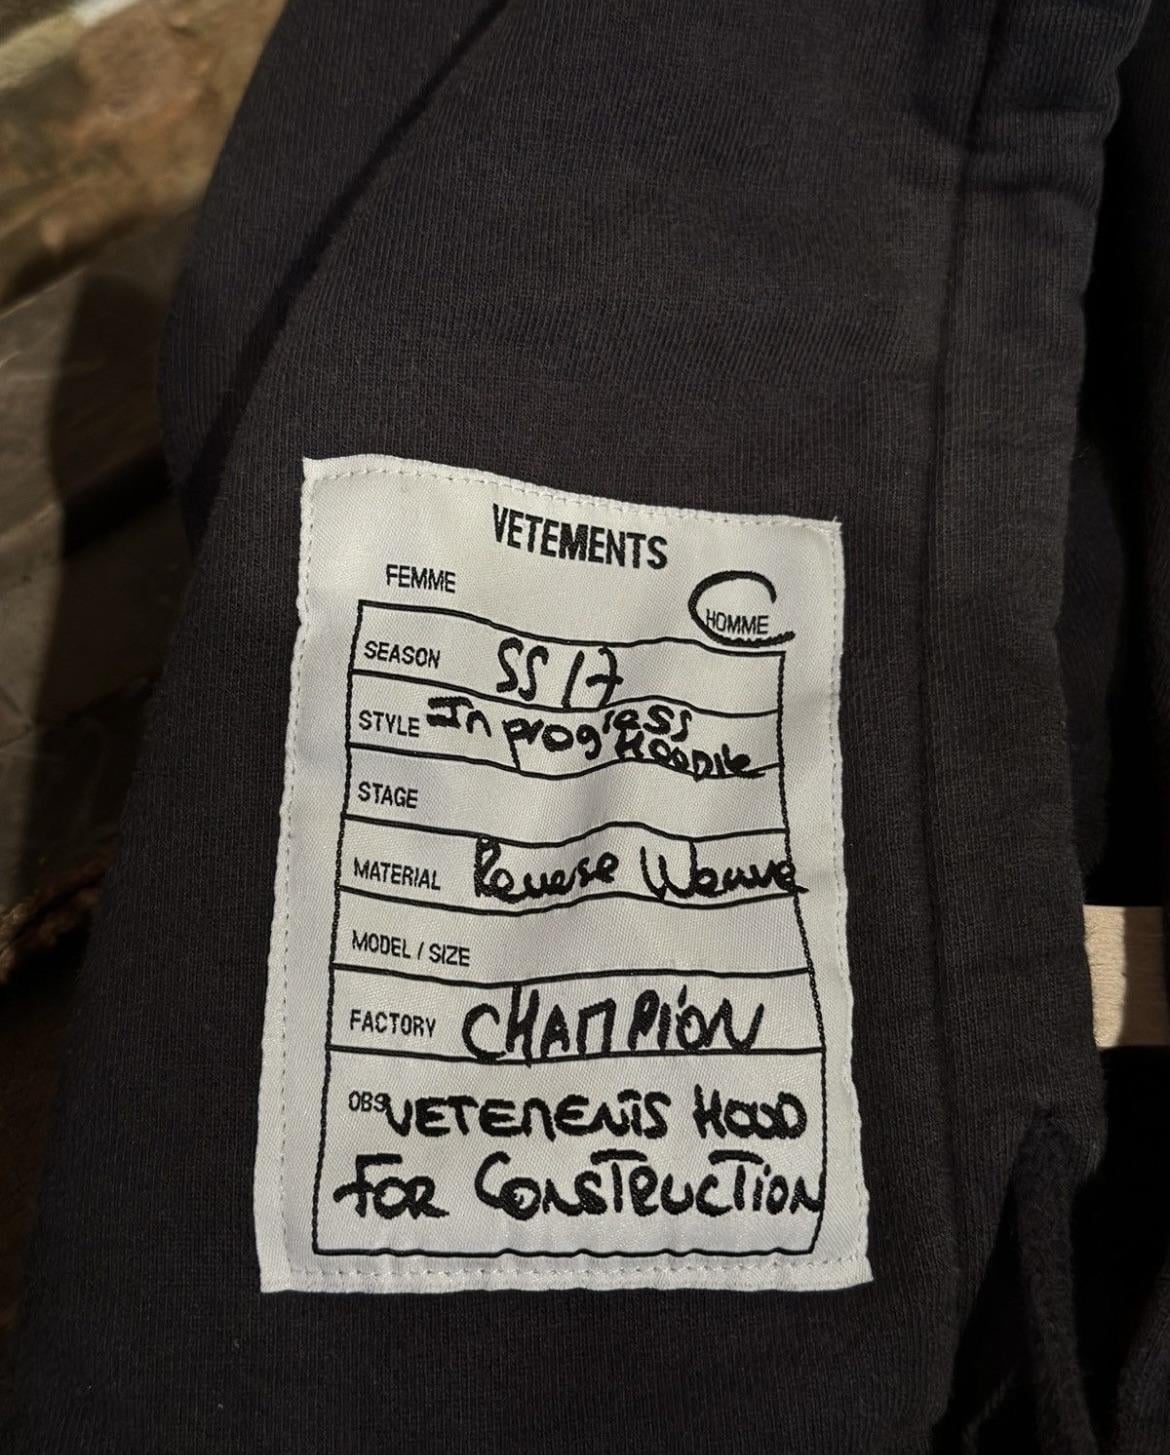 VETEMENTS
FEMME HOMME
SEASON SS 17
STYLE In progress
Hoodie
STAGE
MATERIAL Reverse Weave
MODEL / SIZE
FACTORY CHAMPION
OBS VETEMENTS HOOD
FOR CONSTRUCTION